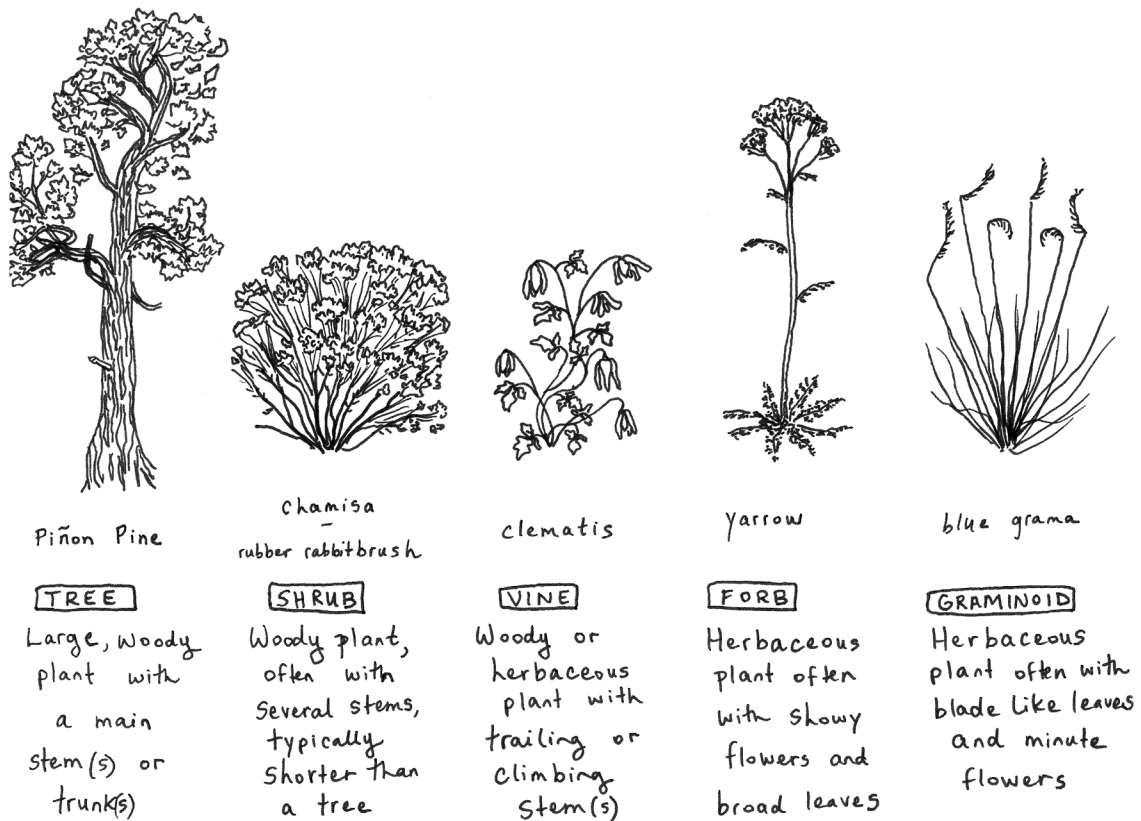 Piñon Pine
TREE
Large, woody
plant with
a main
stem(s) or
trunk(s)
chamisa
–
rubber rabbitbrush
SHRUB
Woody plant,
often with
several stems,
typically
shorter than
a tree
clematis
VINE
Woody or
herbaceous
plant with
trailing or
climbing
stem(s)
yarrow
FORB
Herbaceous
plant often
with showy
flowers and
broad leaves
blue grama
GRAMINOID
Herbaceous
plant often with
blade like leaves
and minute
flowers